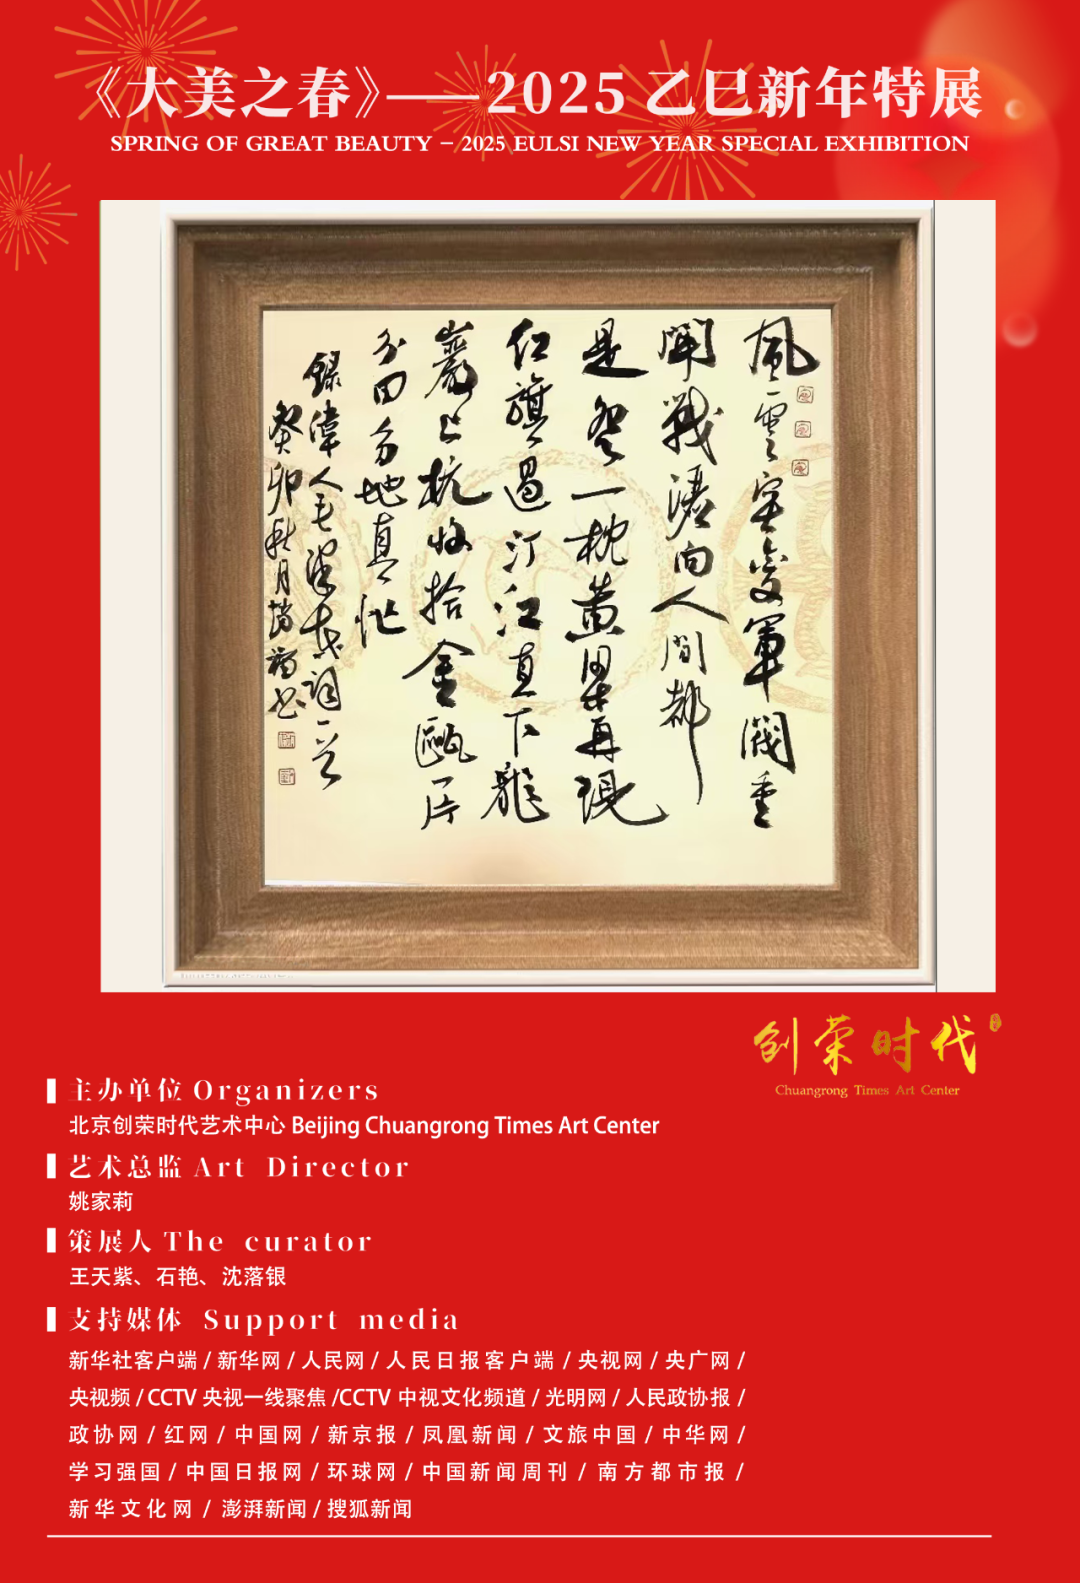 《大美之春》——2025 乙巳新年特展
SPRING OF GREAT BEAUTY – 2025 EULSI NEW YEAR SPECIAL EXHIBITION
風雲突變軍閥重
開戰灑向人間都
是怨一枕黄粱再現
红旗過汀江直下龍
巖上杭收拾金甌一片
分田分地真忙
録偉人毛澤東詞一首
癸卯秋月
创荣时代
Chuangrong Times Art Center
主办单位 Organizers
北京创荣时代艺术中心 Beijing Chuangrong Times Art Center
艺术总监 Art Director
姚家莉
策展人 The curator
王天紫、石艳、沈落银
支持媒体 Support media
新华社客户端 / 新华网 / 人民网 / 人民日报客户端 / 央视网 / 央广网 /
央视频 / CCTV 央视一线聚焦 /CCTV 中视文化频道 / 光明网 / 人民政协报 /
政协网 / 红网 / 中国网 / 新京报 / 凤凰新闻 / 文旅中国 / 中华网 /
学习强国 / 中国日报网 / 环球网 / 中国新闻周刊 / 南方都市报 /
新华文化网 / 澎湃新闻 / 搜狐新闻